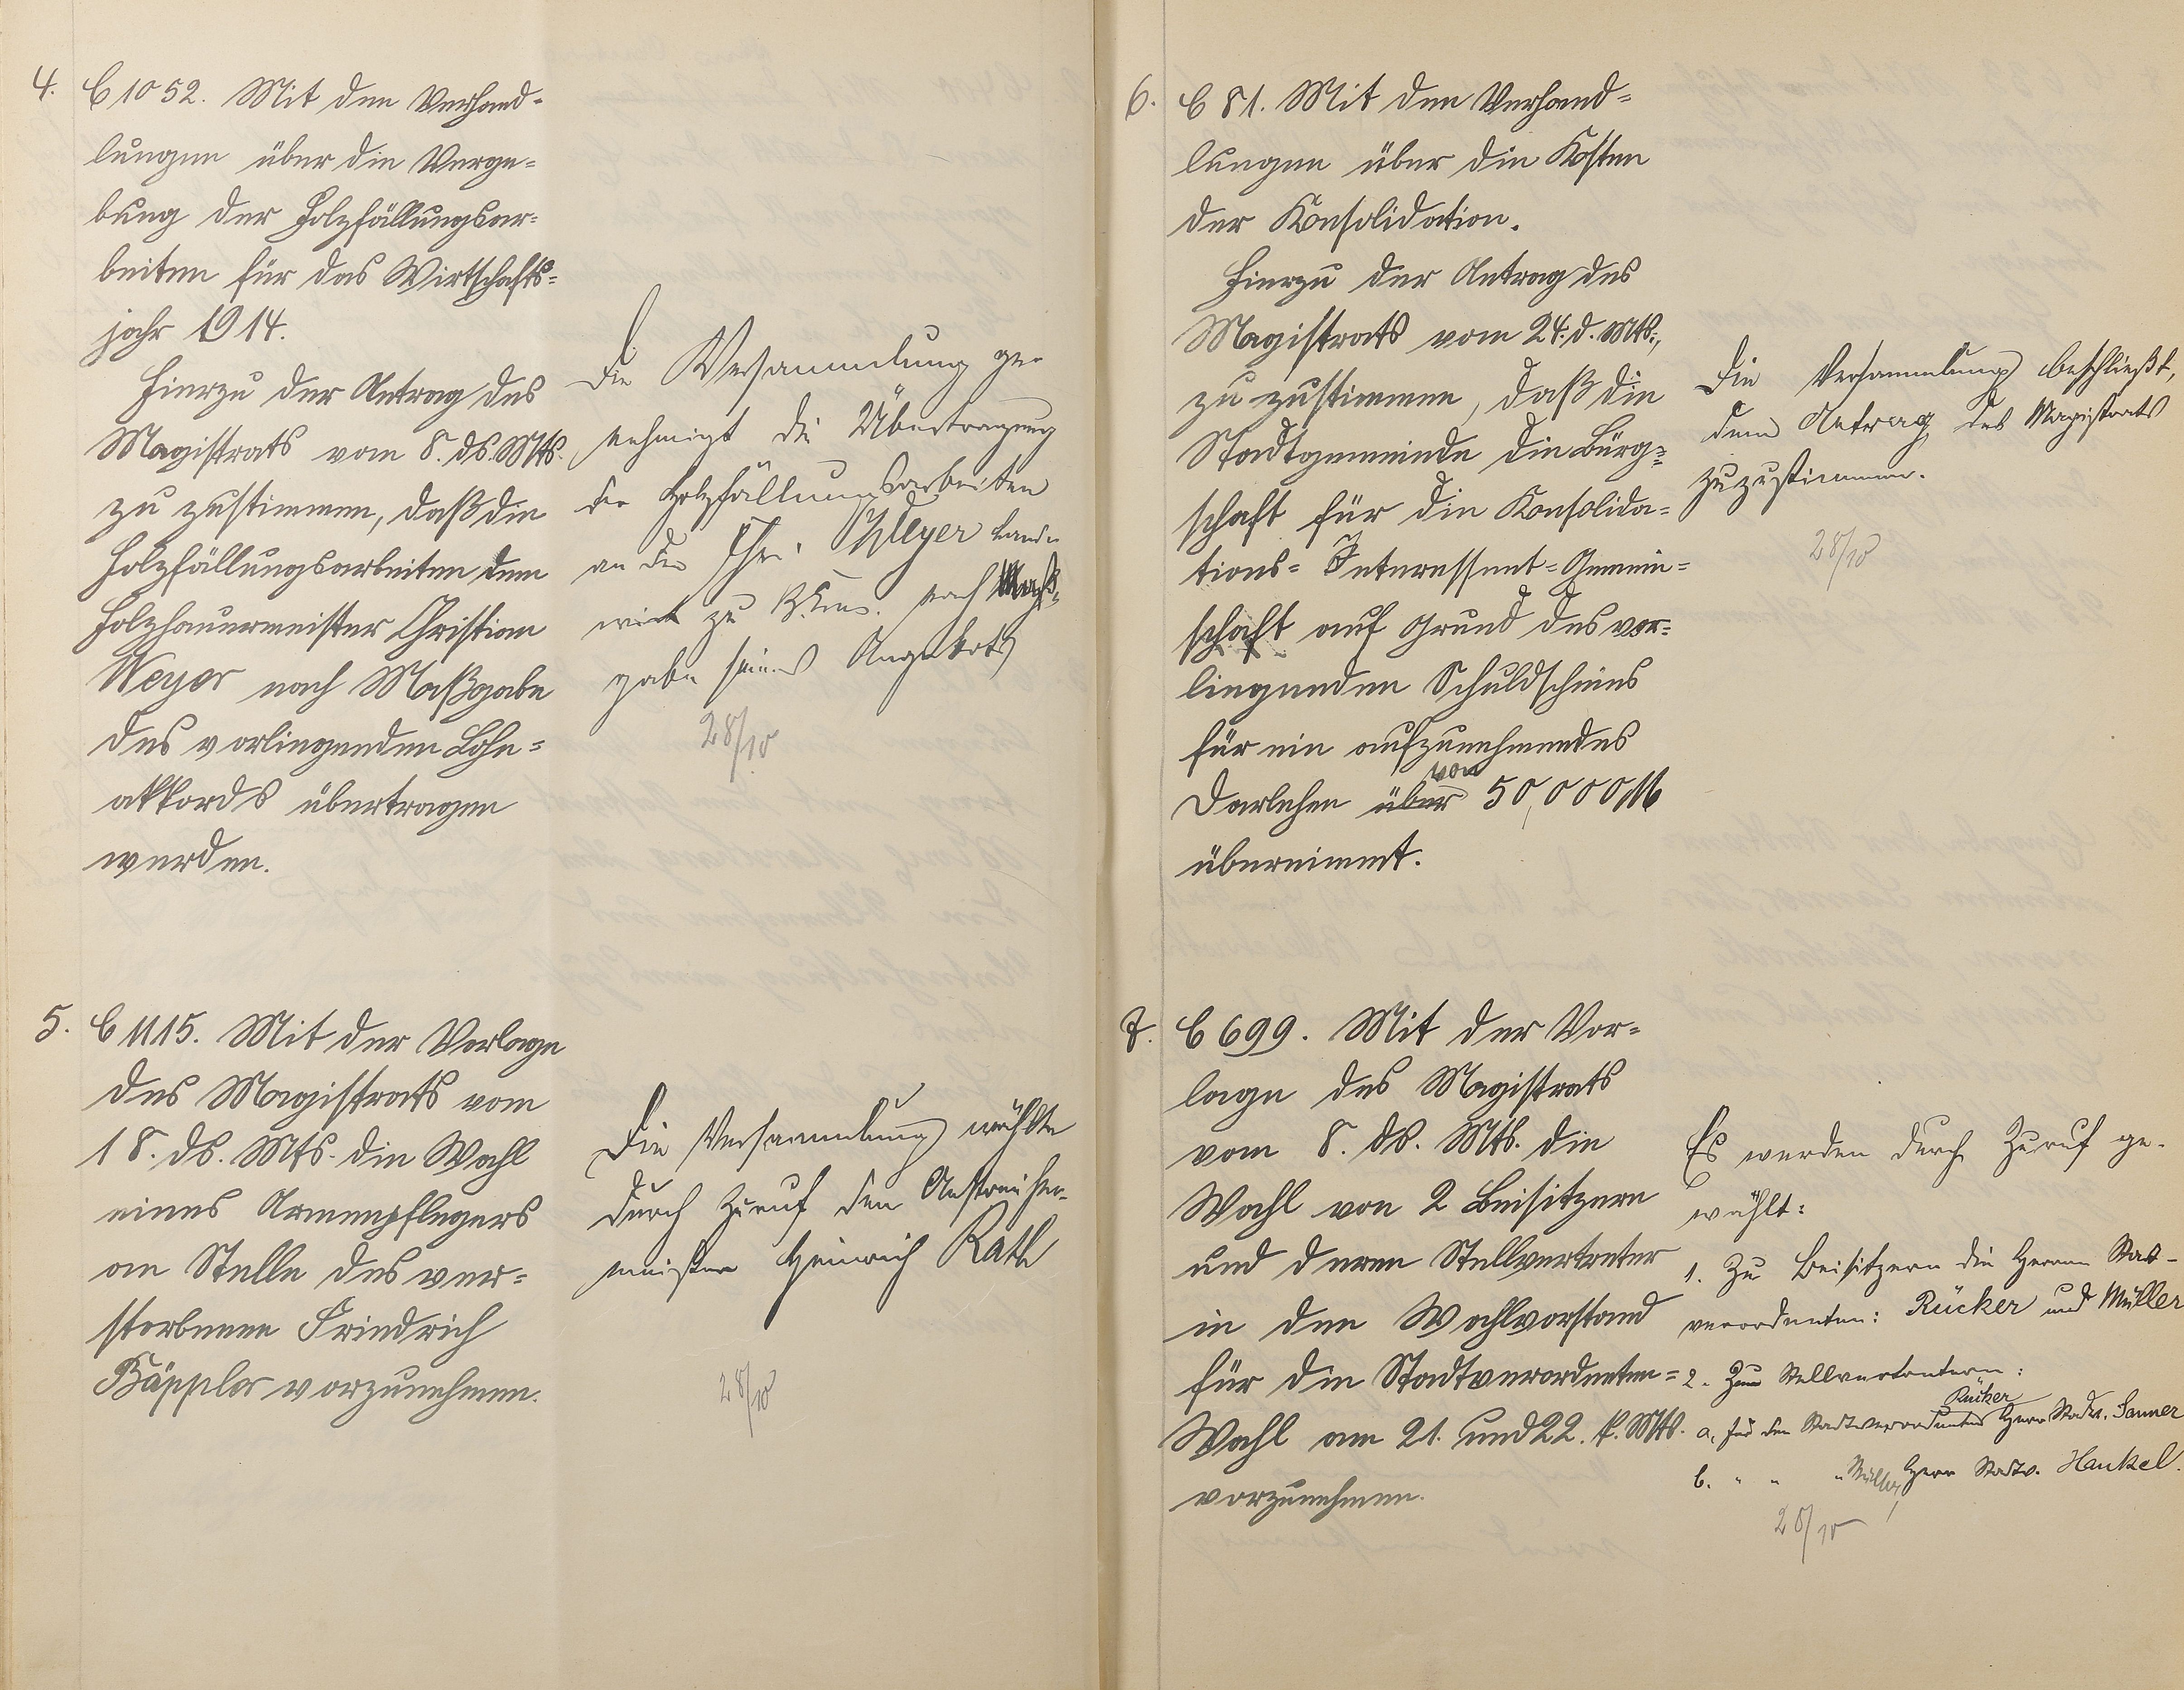 4. C 1052. Mit den Verhand-
lungen über die Verge-
bung der Holzfällungsar-
beiten für das Wirtschafts-
jahr 1914.
Hierzu der Antrag des
Magistrats vom 8. ds. Mts.
zu zustimmen, daß die
Holzfällungsarbeiten dem
Holzhauermeister Christian
Weyer nach Maßgabe
des vorliegenden Lohn-
akkords übertragen
werden.
Die Versammlung ge-
nehmigt die Übertragung
der Holzfällungsarbeiten
an den Chr. Weyer Land-
wirt zu nach Maß-
gabe seines Angebots
28/10
5. C 1115. Mit der Vorlage
des Magistrats vom
18. ds. Mts. die Wahl
eines Armenpflegers
an Stelle des ver-
storbenen Friedrich
Käppler vorzunehmen.
Die Versammlung wählte
durch Zuruf den Anstreicher-
meister Heinrich Rath
28/10
6. C 81. Mit den Verhand-
lungen über die Kosten
der Konsolidation.
Hierzu der Antrag des
Magistrats vom 24. d. Mts.,
zu zustimmen, daß die
Stadtgemeinde die Bürg-
schaft für die Konsolida-
tions-Interessent-Gemein-
schaft auf Grund des vor-
liegenden Schuldscheins
für ein aufzunehmendes
von
Darlehen über 50,000 M
übernimmt.
Die Versammlung beschließt,
dem Antrag des Magistrats
zuzustimmen.
28/10
7. C 699. Mit der Vor-
lage des Magistrats
vom 8. ds. Mts. die
Wahl von 2 Beisitzern
und deren Stellvertreter
in den Wahlvorstand
für die Stadtverordneten-
Wahl am 21. und 22. k. Mts.
vorzunehmen.
Es werden durch Zuruf ge-
wählt:
1. Zu Beisitzern die Herren Stadt-
verordneten: Rücker und Müller
2. Zu Stellvertretern:
Rücker
a, für den Stadtverordneten Herr Stadtv. Sauner
b. " " " Müller, Herr Stadtv. Hankel.
28/10